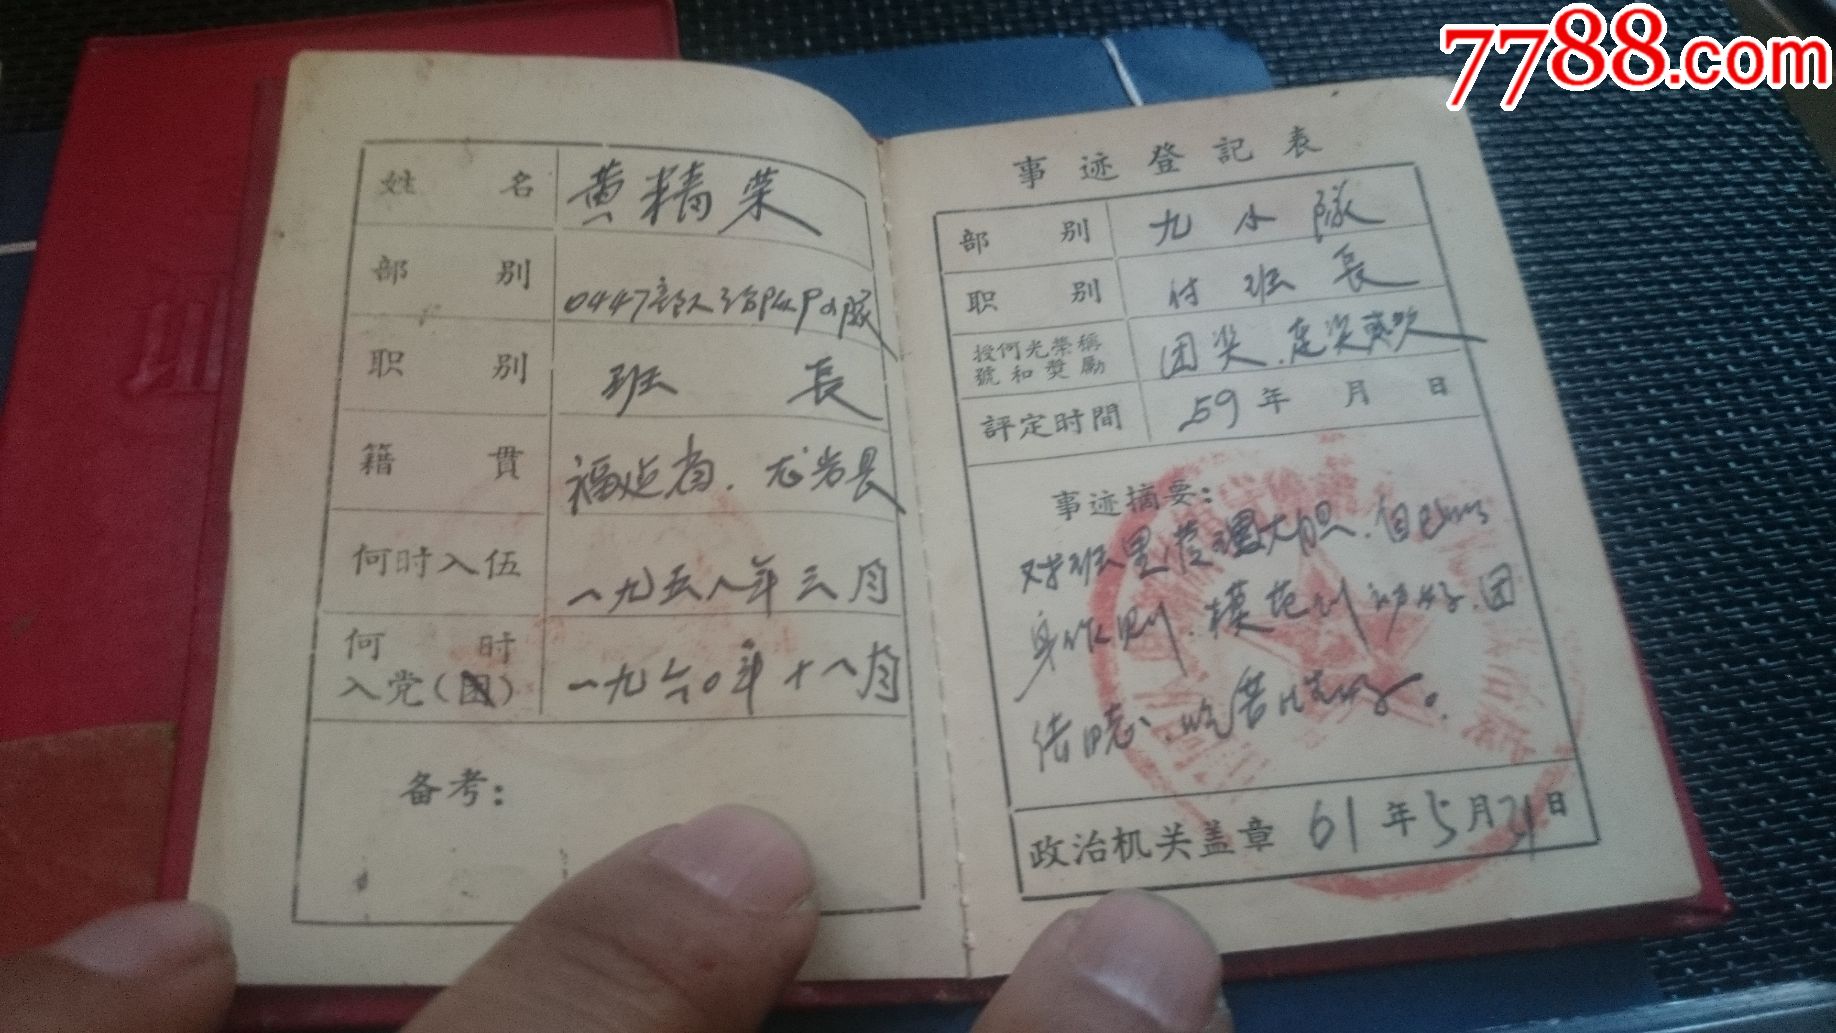 7788.com
姓名 黄精荣
部别 0447部队
职别 班長
籍貫 福建省.龙岩县
何时入伍 一九五八年三月
何时入党(团) 一九六〇年十八月
备考:
事迹登記表
部别 九小隊
职别 付班長
授何光荣稱號和奬励 团奖.
評定时間 59年 月 日
事迹摘要:
对班里管理大胆.自己以
身作则.模范
.吃苦
政治机关盖章 61年5月31日